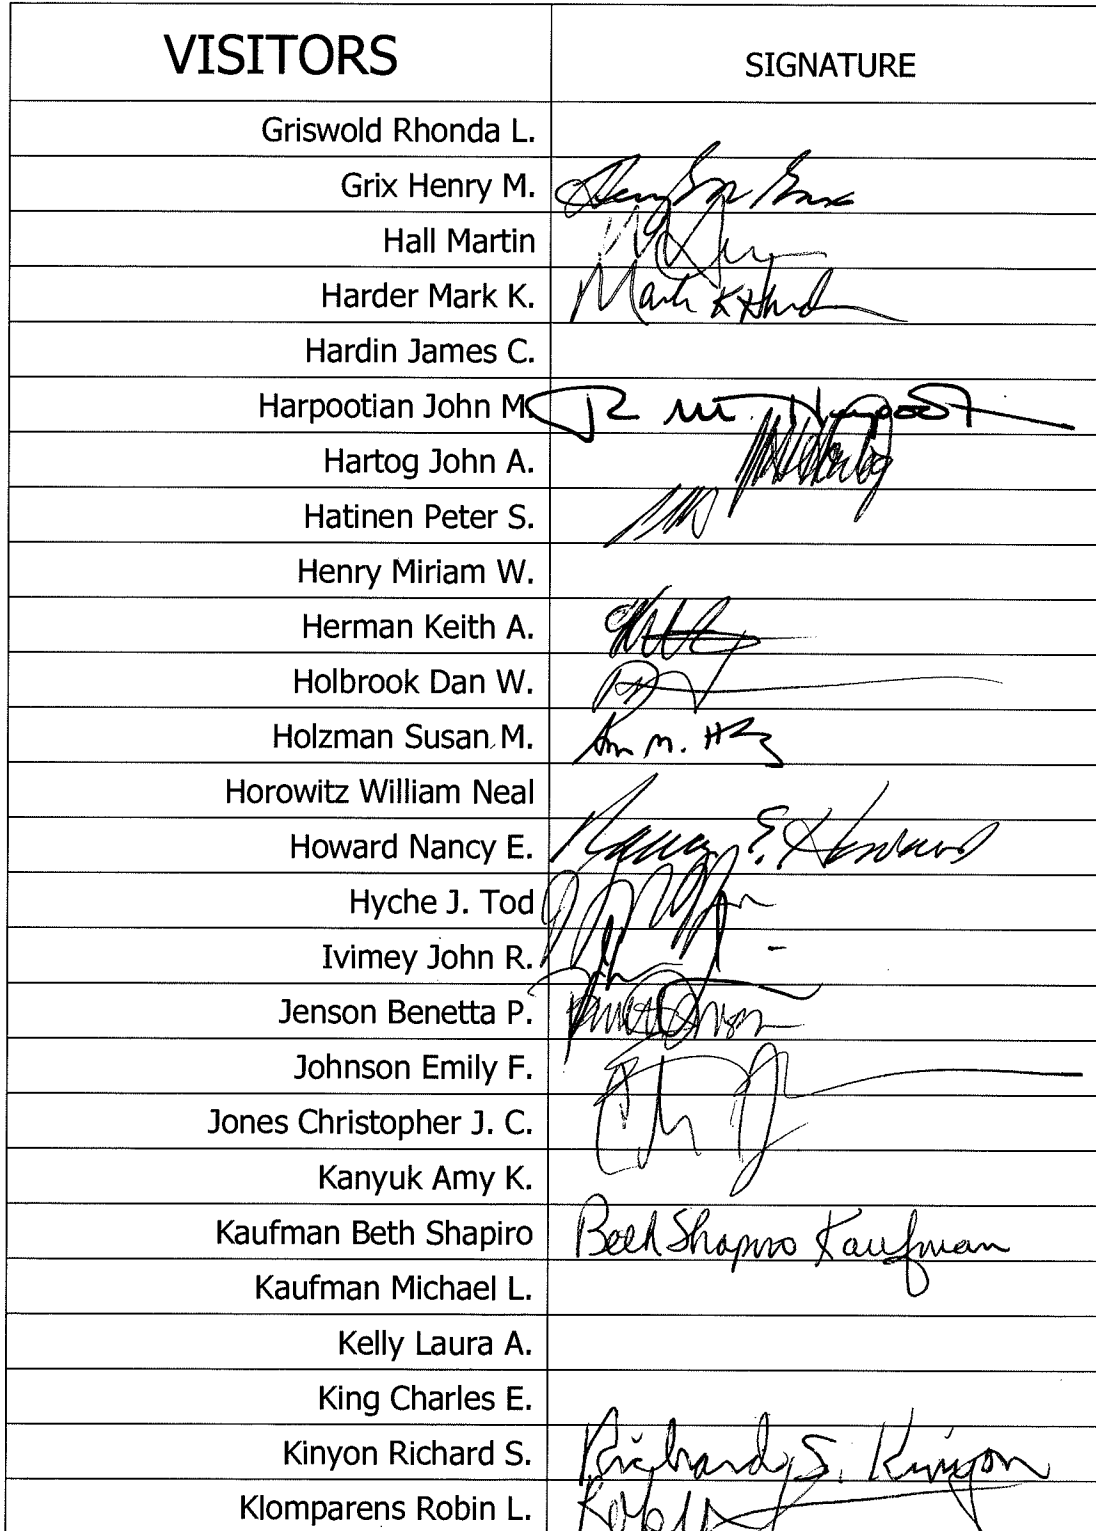 VISITORS SIGNATURE
Griswold Rhonda L.
Grix Henry M.
Hall Martin
Harder Mark K. Mark K Hard
Hardin James C.
Harpootian John M. J. M. Harpoot
Hartog John A.
Hatinen Peter S.
Henry Miriam W.
Herman Keith A.
Holbrook Dan W.
Holzman Susan M.
Horowitz William Neal
Howard Nancy E. Nancy E. Howard
Hyche J. Tod
Ivimey John R.
Jenson Benetta P.
Johnson Emily F.
Jones Christopher J. C.
Kanyuk Amy K.
Kaufman Beth Shapiro Beth Shapiro Kaufman
Kaufman Michael L.
Kelly Laura A.
King Charles E.
Kinyon Richard S. Richard S. Kinyon
Klomparens Robin L.